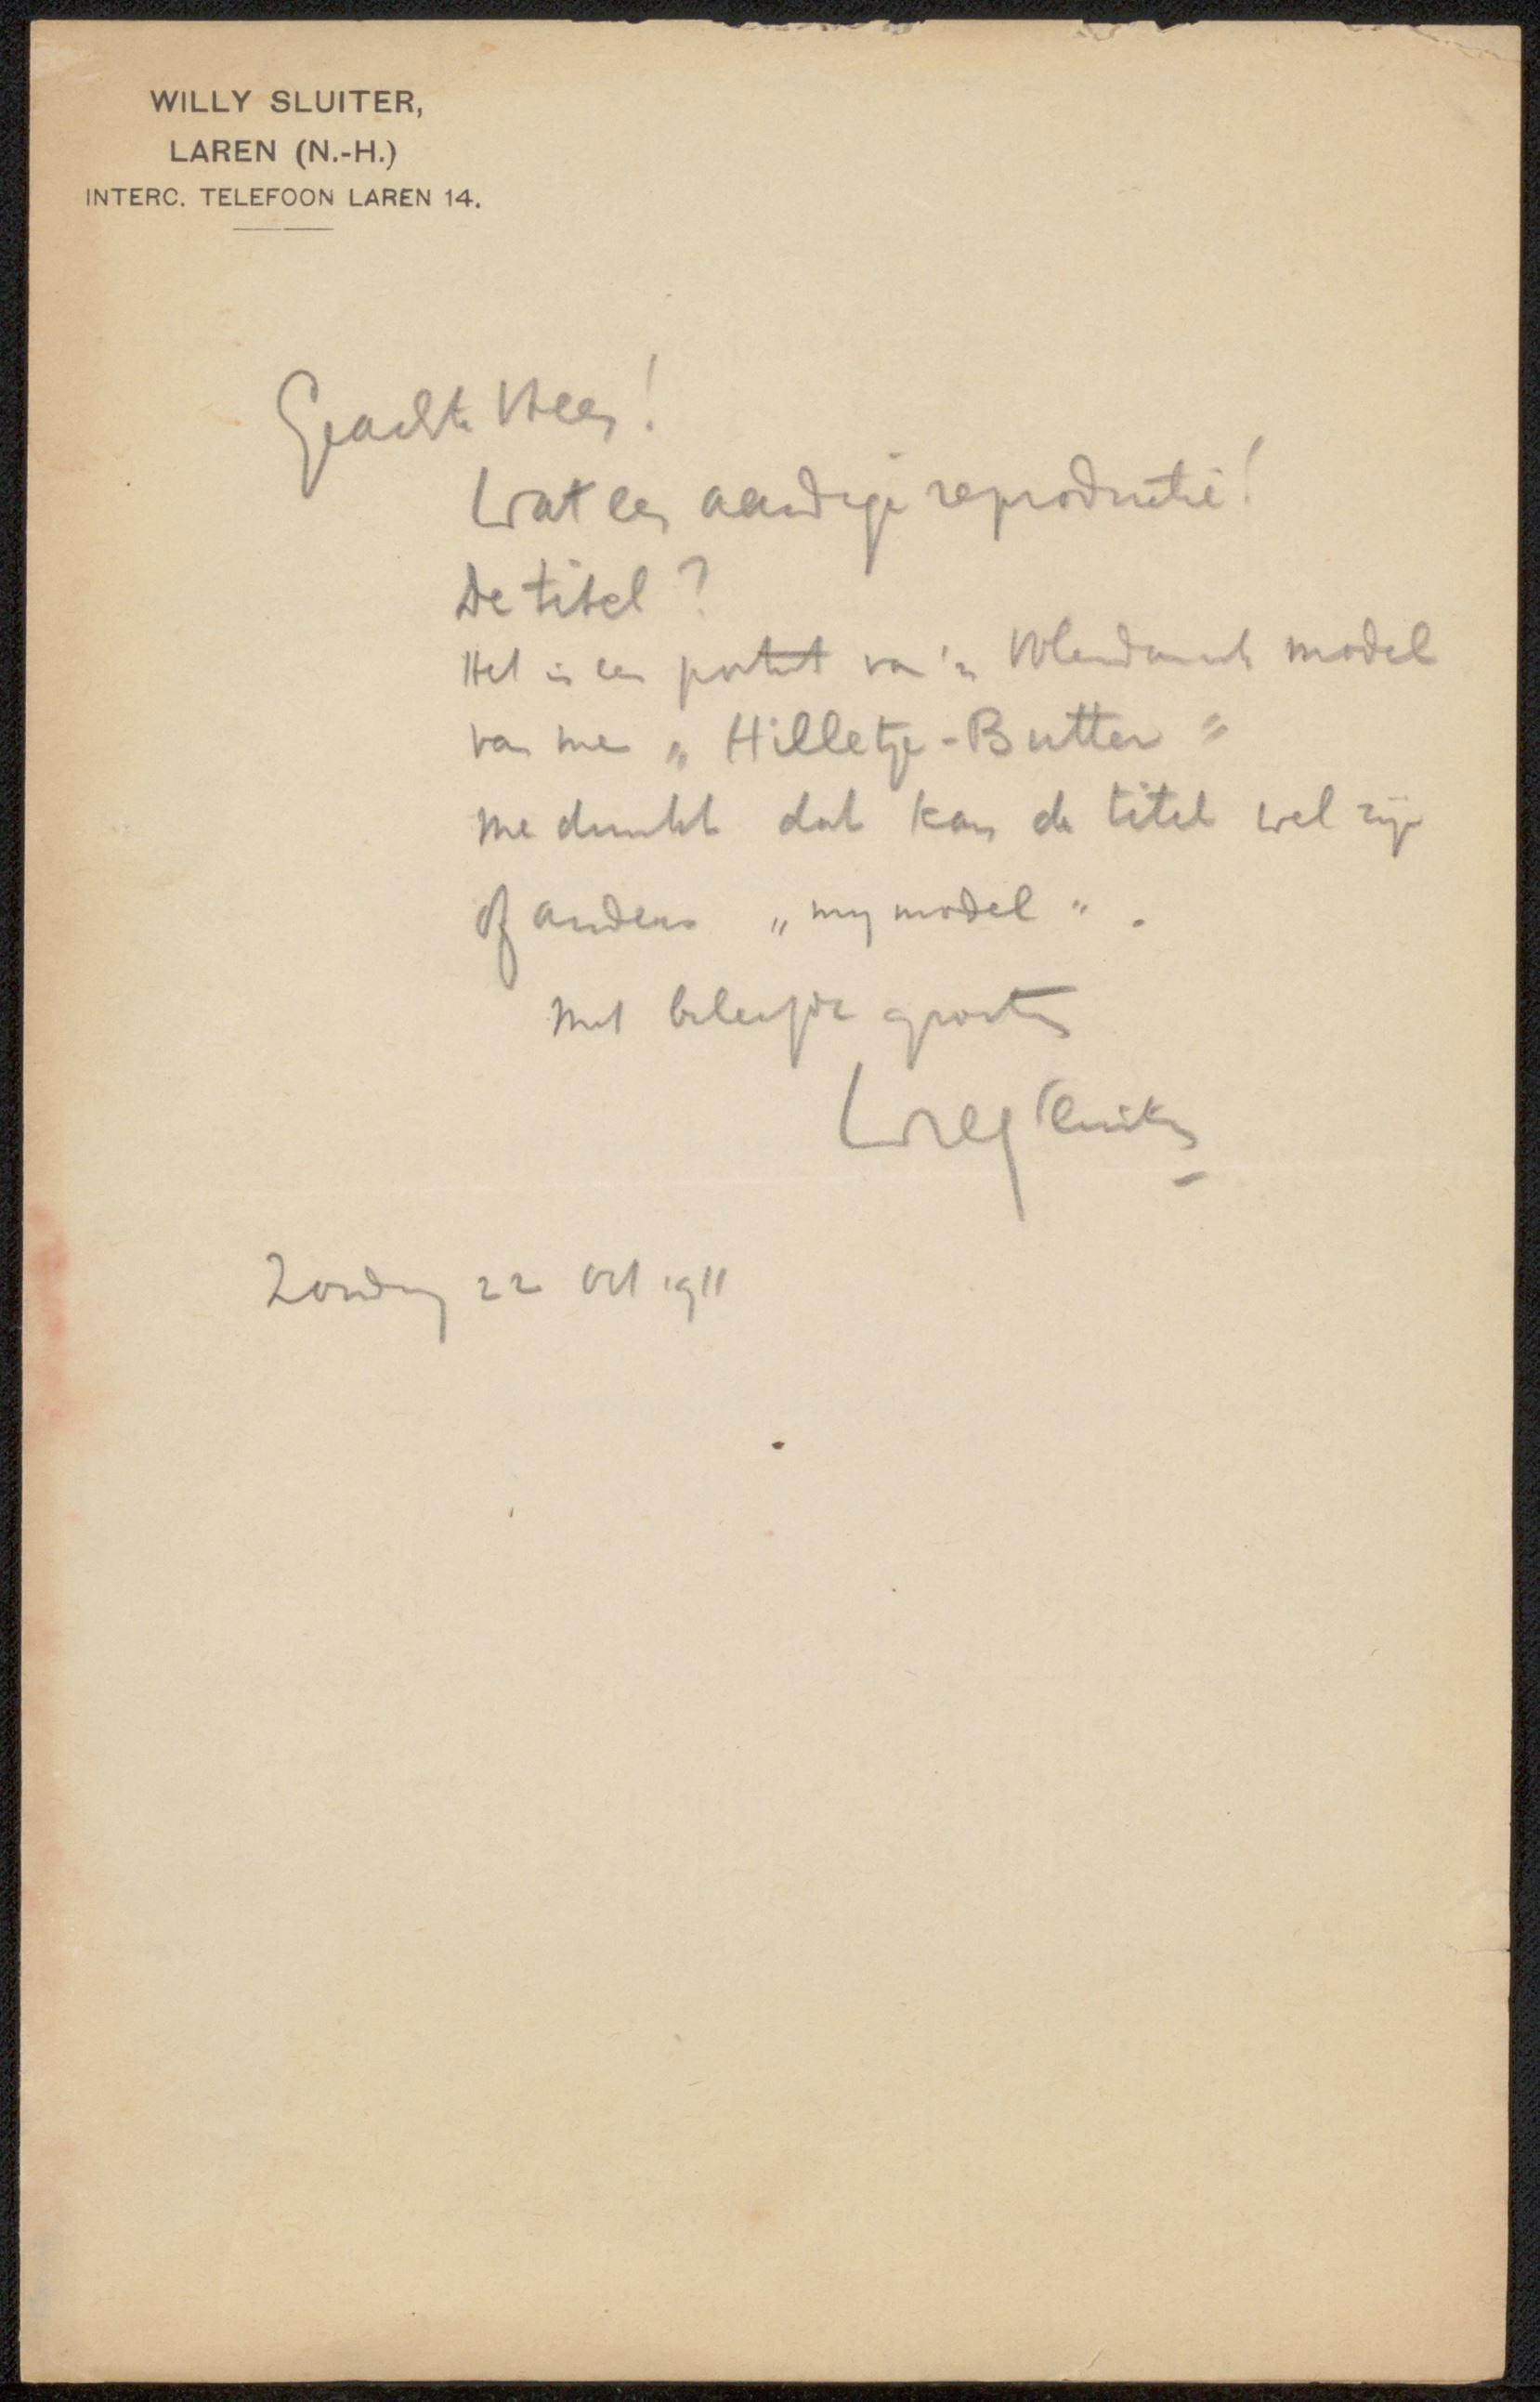 WILLY SLUITER,
LAREN (N.-H.)
INTERC. TELEFOON LAREN 14.
Geachte Heer!
Wat een aardige reproductie!
De titel?
Het is een portret van 'n Volendamsch model
van me „Hilletje-Butter"
me dunkt dat kan de titel wel zijn
of anders „mij model".
Met beleefde groeten
Willy Sluiter
Zondag 22 Oct 1911